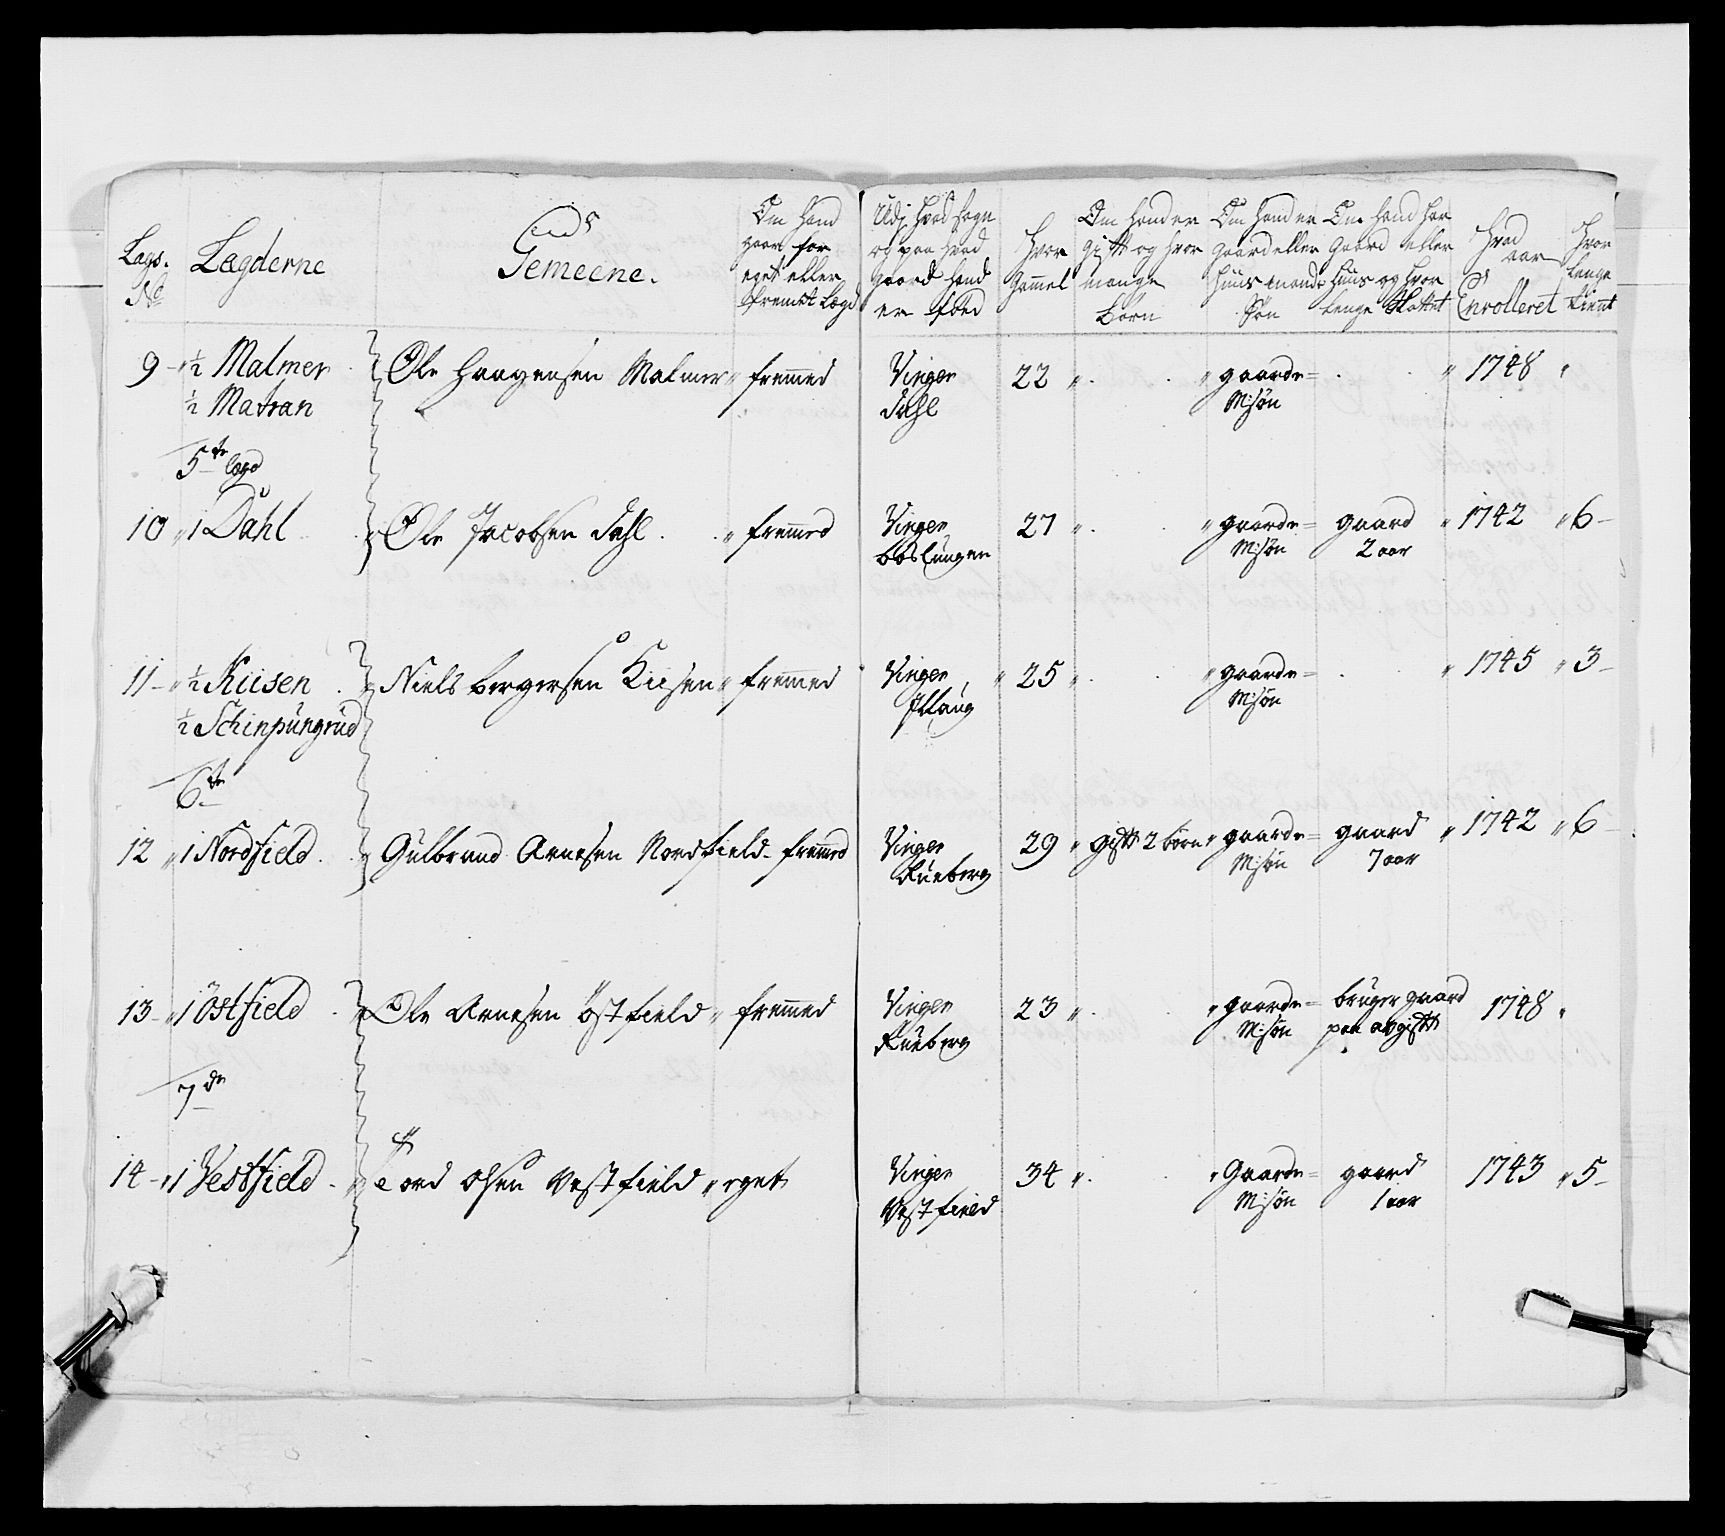 Lægs. No
Lægderne
Gemeene.
Om Hand gaar for eget eller fremet Lægd
Udj hvad sogn og paa hvad gaard Hand er fød
Hvor Gammel
Om Hand er gift og hvor mange børn
Om Hand er gaard eller Huus mands Søn
Om Hand har Gaard eller Huus og hvor Lenge
Hvad aar Enrolleret
Hvor Lenge tient
9 - " ½ Malmer Ole Haagensen Malmer " fremed Vinger 22 " . . " gaarde= . . " 1748 "
½ Matran Dahl M: søn
5te lægd
10 " 1 Dahl . . " Ole Jacobsen Dahl . . " fremed Vinger 27 " . " gaarde= gaard " 1742 " 6 -
M: søn 2 aar
11 - " ½ Kiisen . " Niels Bergersen Kiisen " fremed Vinger " 25 " . . " gaarde= . " 1745 " 3 -
½ Schinpungrud M: søn
6te
12 " 1 Nordfield . . " Gulbrand Arnesen Nordfield - fremed Vinger 29 " gift 2 børn " gaarde= gaard " 1742 " 6 -
Rueberg M: søn 7 aar
13 - " 1 Östfield . " Ole Arnesen Östfield " fremed Vinger 23 " . . " gaarde= bruger gaard 1748 "
Rueberg M: søn paa avgift
7de
14 - " 1 Vestfield . " Tord Olsen Vestfield " eget Vinger 34 " . . " Gaarde= gaard 1743 " 5 -
Vestfield M: søn 1 aar